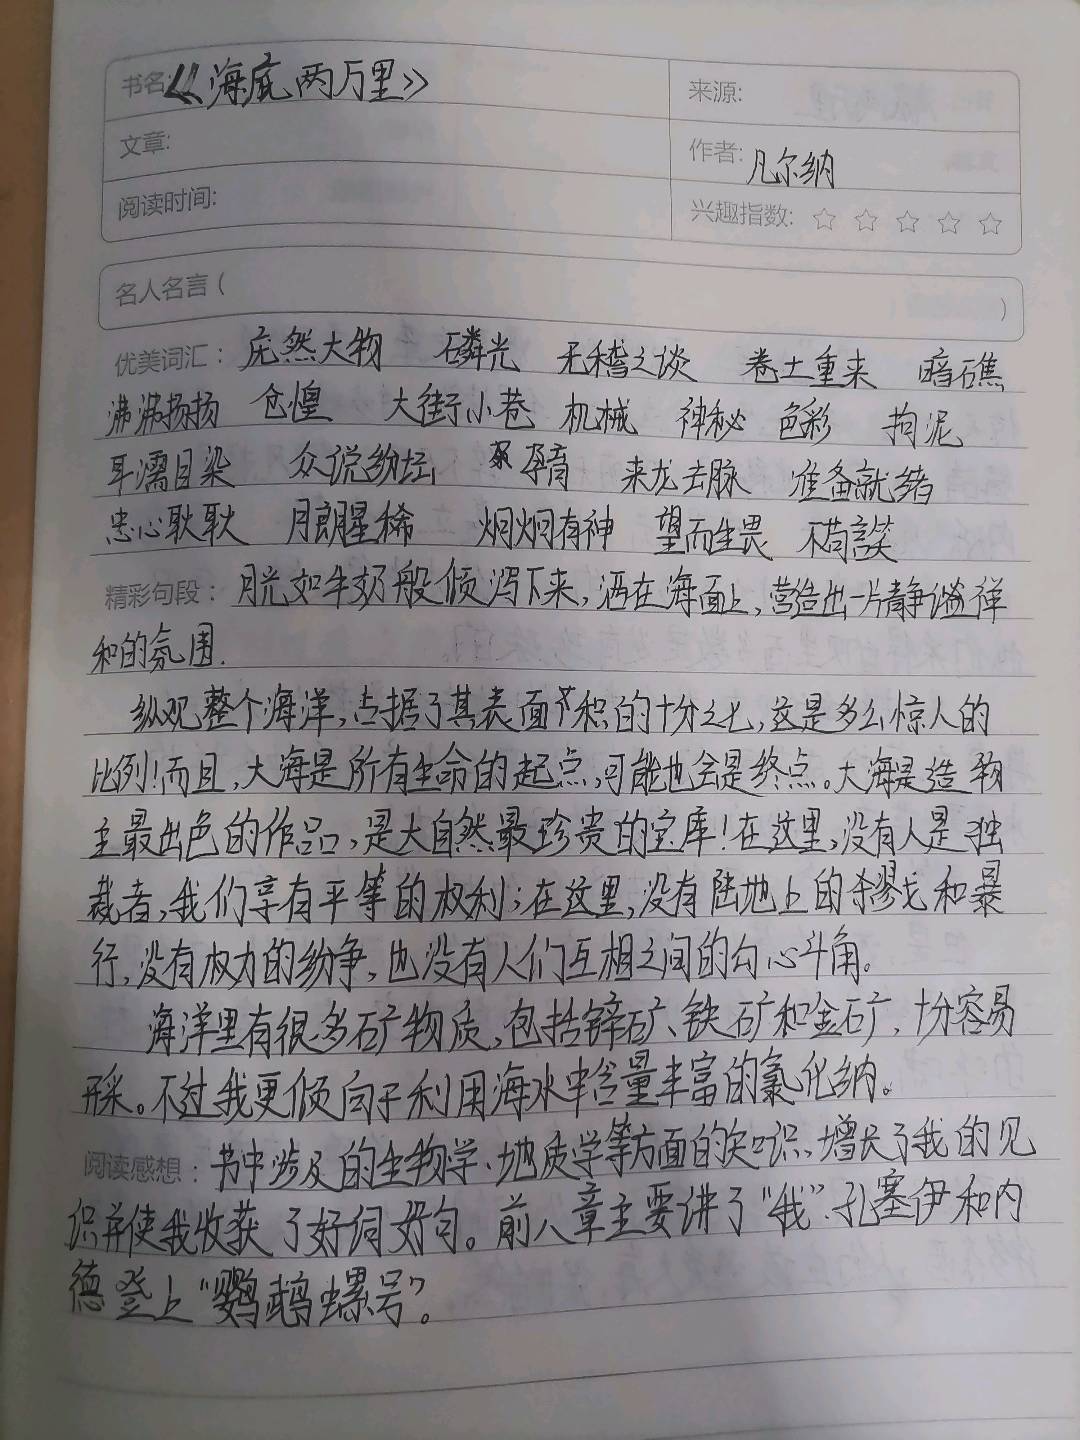 书名:《海底两万里》
来源:
文章:
作者: 凡尔纳
阅读时间:
兴趣指数: ☆ ☆ ☆ ☆ ☆
名人名言 ( )
优美词汇: 庞然大物 磷光 无稽之谈 卷土重来 暗礁
沸沸扬扬 仓惶 大街小巷 机械 神秘 色彩 拘泥
耳濡目染 众说纷纭 孕育 来龙去脉 准备就绪
忠心耿耿 月朗星稀 炯炯有神 望而生畏 不苟言笑
精彩句段: 月光如牛奶般倾泻下来,洒在海面上,营造出一片静谧祥
和的氛围.
纵观整个海洋,占据了其表面积的十分之七,这是多么惊人的
比例!而且,大海是所有生命的起点,可能也会是终点。大海是造物
主最出色的作品,是大自然最珍贵的宝库!在这里,没有人是独
裁者,我们享有平等的权利;在这里,没有陆地上的杀戮和暴
行,没有权力的纷争,也没有人们互相之间的勾心斗角。
海洋里有很多矿物质,包括锌矿、铁矿和金矿,十分容易
开采。不过我更倾向于利用海水中含量丰富的氯化纳。
阅读感想: 书中涉及的生物学、地质学等方面的知识、增长了我的见
识并使我收获了好词好句。前八章主要讲了“我”、孔塞伊和内
德登上“鹦鹉螺号”。